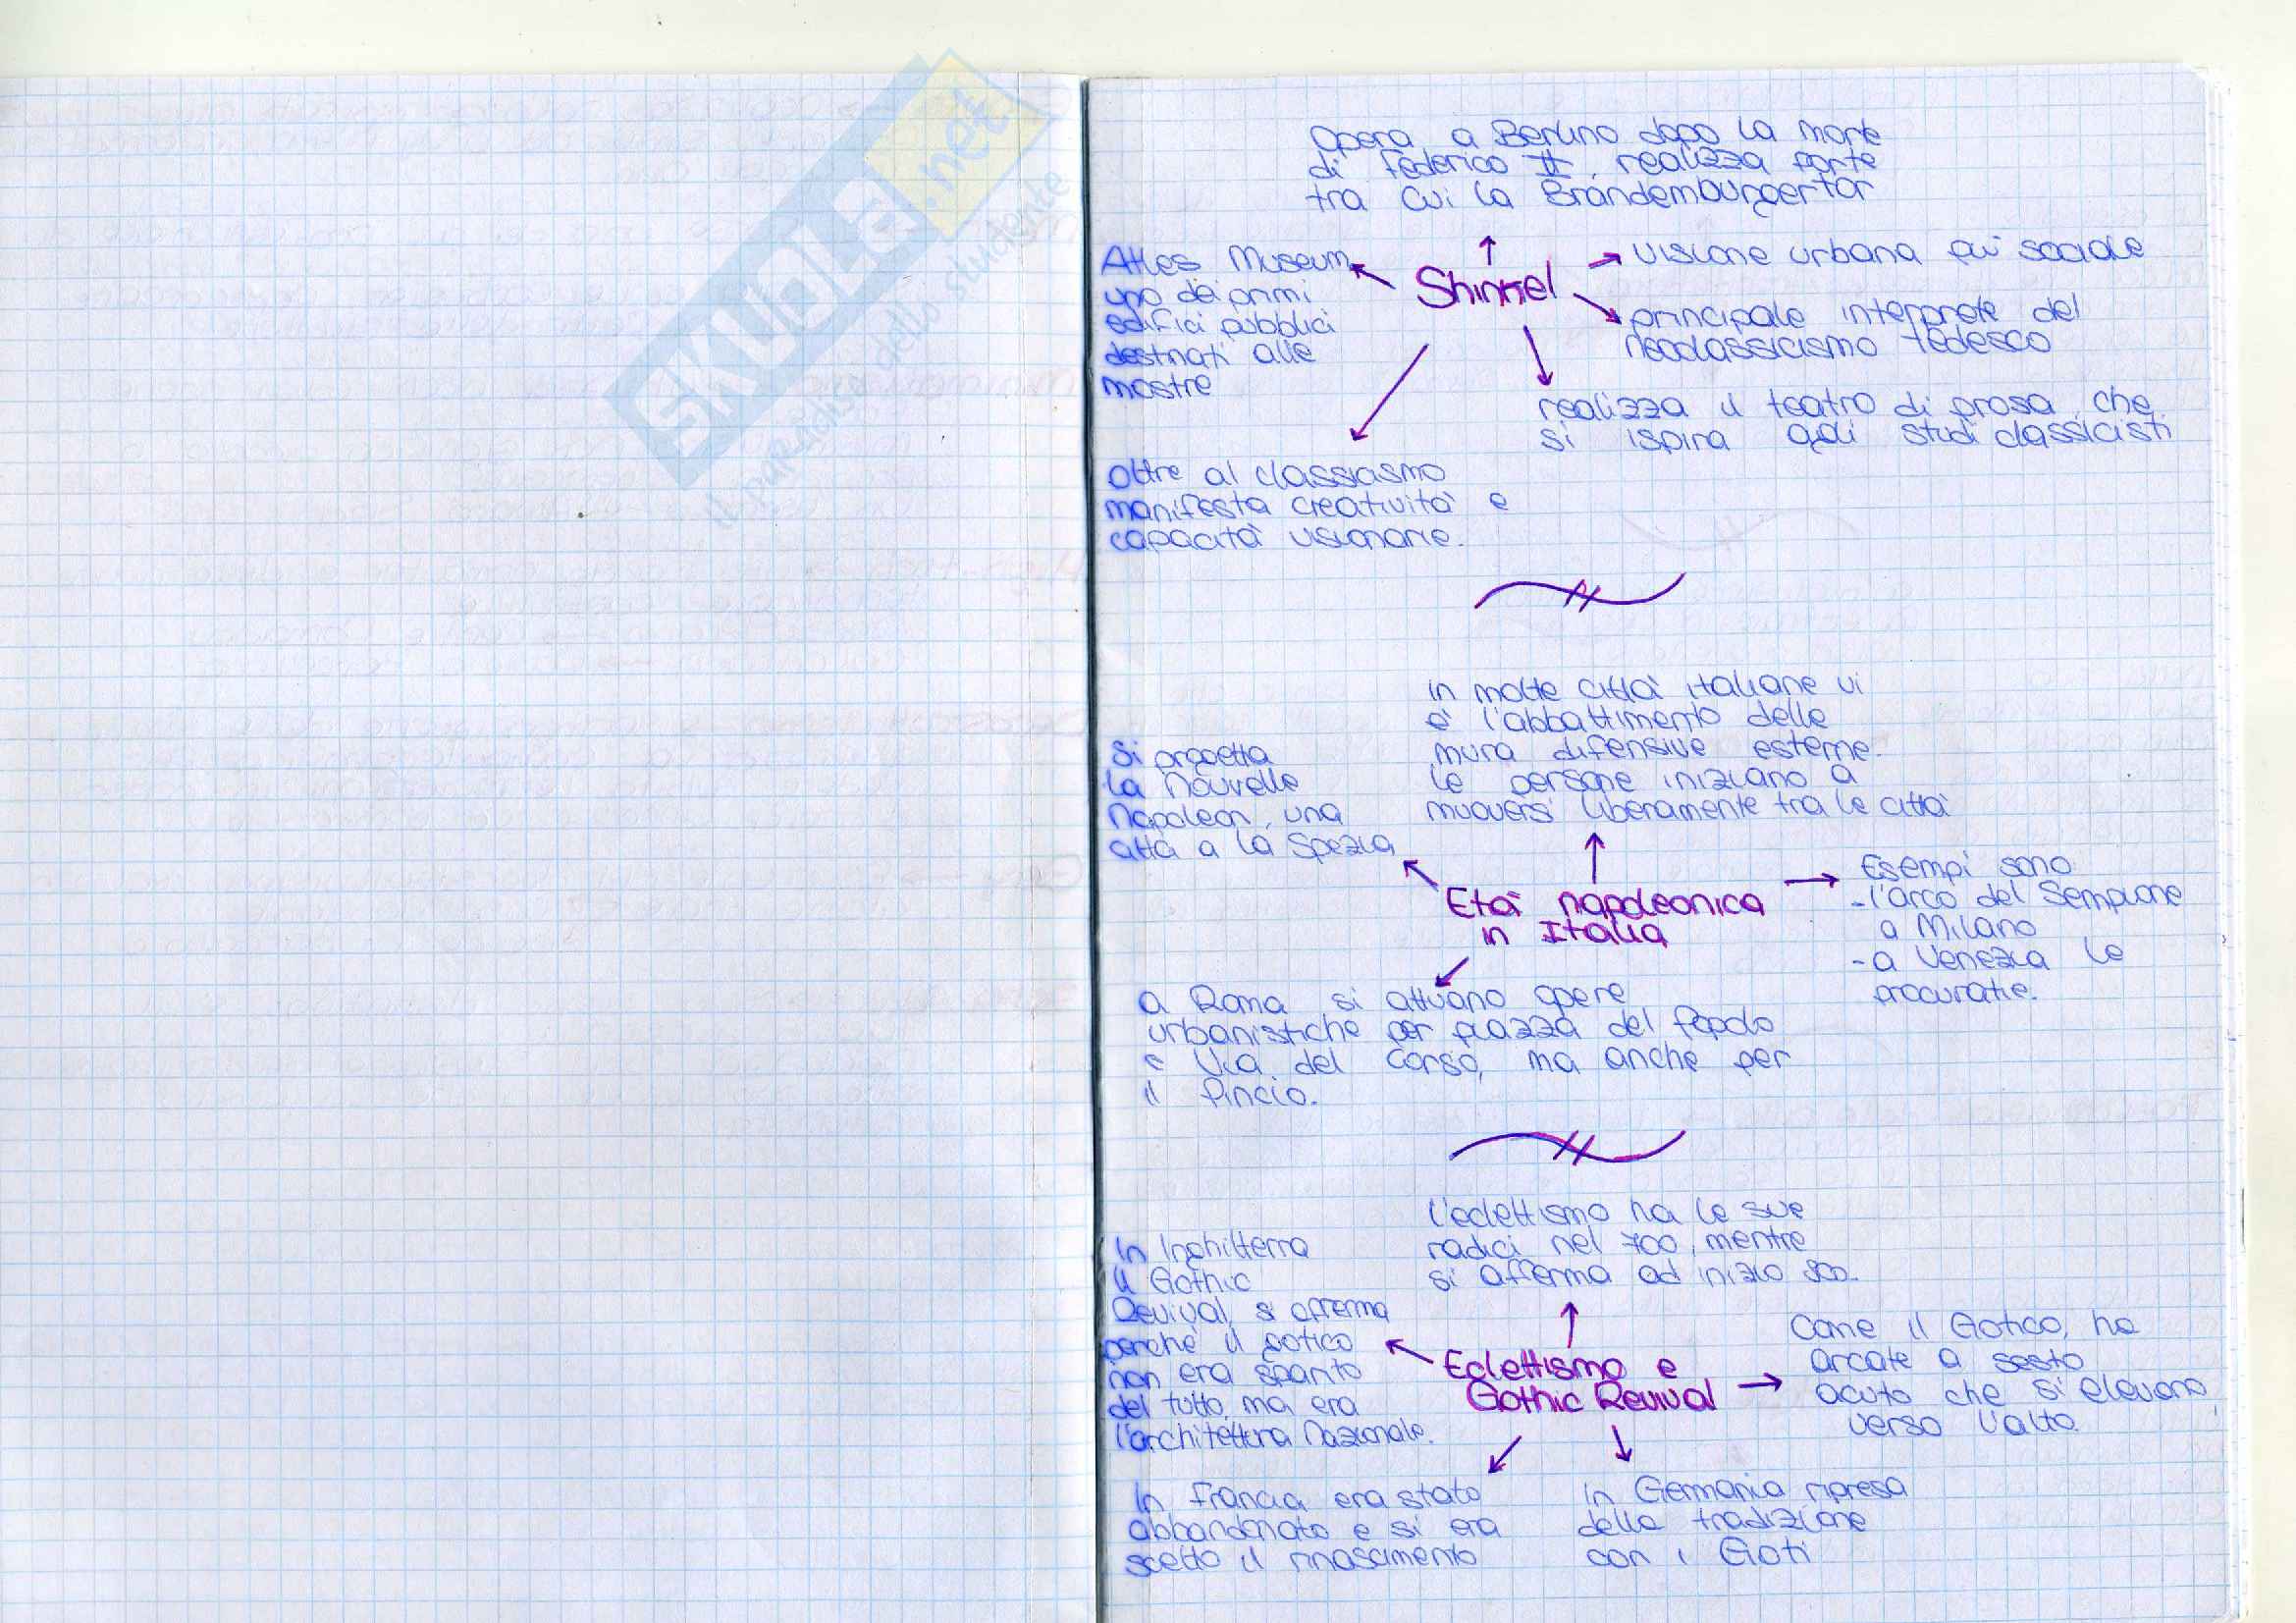 SKUOLA.net
il paradiso dello studente
Opera a Berlino dopo la morte
di Federico II, realizza porte
tra cui la Brandemburgertor
Altes Museum
uno dei primi
edifici pubblici
destinati alle
mostre
Shinkel
visione urbana più sociale
principale interprete del
neoclassicismo tedesco
realizza il teatro di prosa, che
si ispira agli studi classicisti
oltre al classicismo
manifesta creatività e
capacità visionarie.
in molte città italiane vi
è l'abbattimento delle
mura difensive esterne.
le persone iniziano a
muoversi liberamente tra le città
Si progetta
la Nouvelle
Napoleon, una
città a la Spezia
Età napoleonica
in Italia
Esempi sono
-l'arco del Sempione
a Milano
-a Venezia le
procuratie.
a Roma si attuano opere
urbanistiche per piazza del Popolo
e Via del Corso, ma anche per
il Pincio.
l'eclettismo ha le sue
radici nel 700, mentre
si afferma ad inizio 800.
In Inghilterra
il Gothic
Revival, si afferma
perché il gotico
non era sparito
del tutto, ma era
l'architettura Nazionale.
Eclettismo e
Gothic Revival
Come il Gotico, ha
arcate a sesto
acuto che si elevano
verso l'alto.
In Francia era stato
abbandonato e si era
scelto il rinascimento
in Germania ripresa
della tradizione
con i Goti